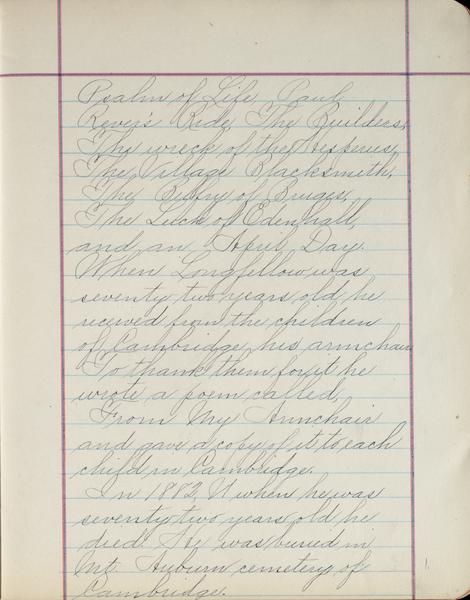 Psalm of Life, Paul
Rever's Ride, The Builders,
The wreck of the Hesperus,
The Village Blacksmith,
The Belfry of Bruges,
The Luck of Edenhall,
and an April Day.
When Longfellow was
seventy two years old, he
received from the children
of Cambridge, his armchair.
To thank them for it he
wrote a poem called,
From My Armchair
and gave a copy of it to each
child in Cambridge.
In 1882, when he was
seventy two years old he
died. He was buried in
Mt. Auburn cemetery of
Cambridge.